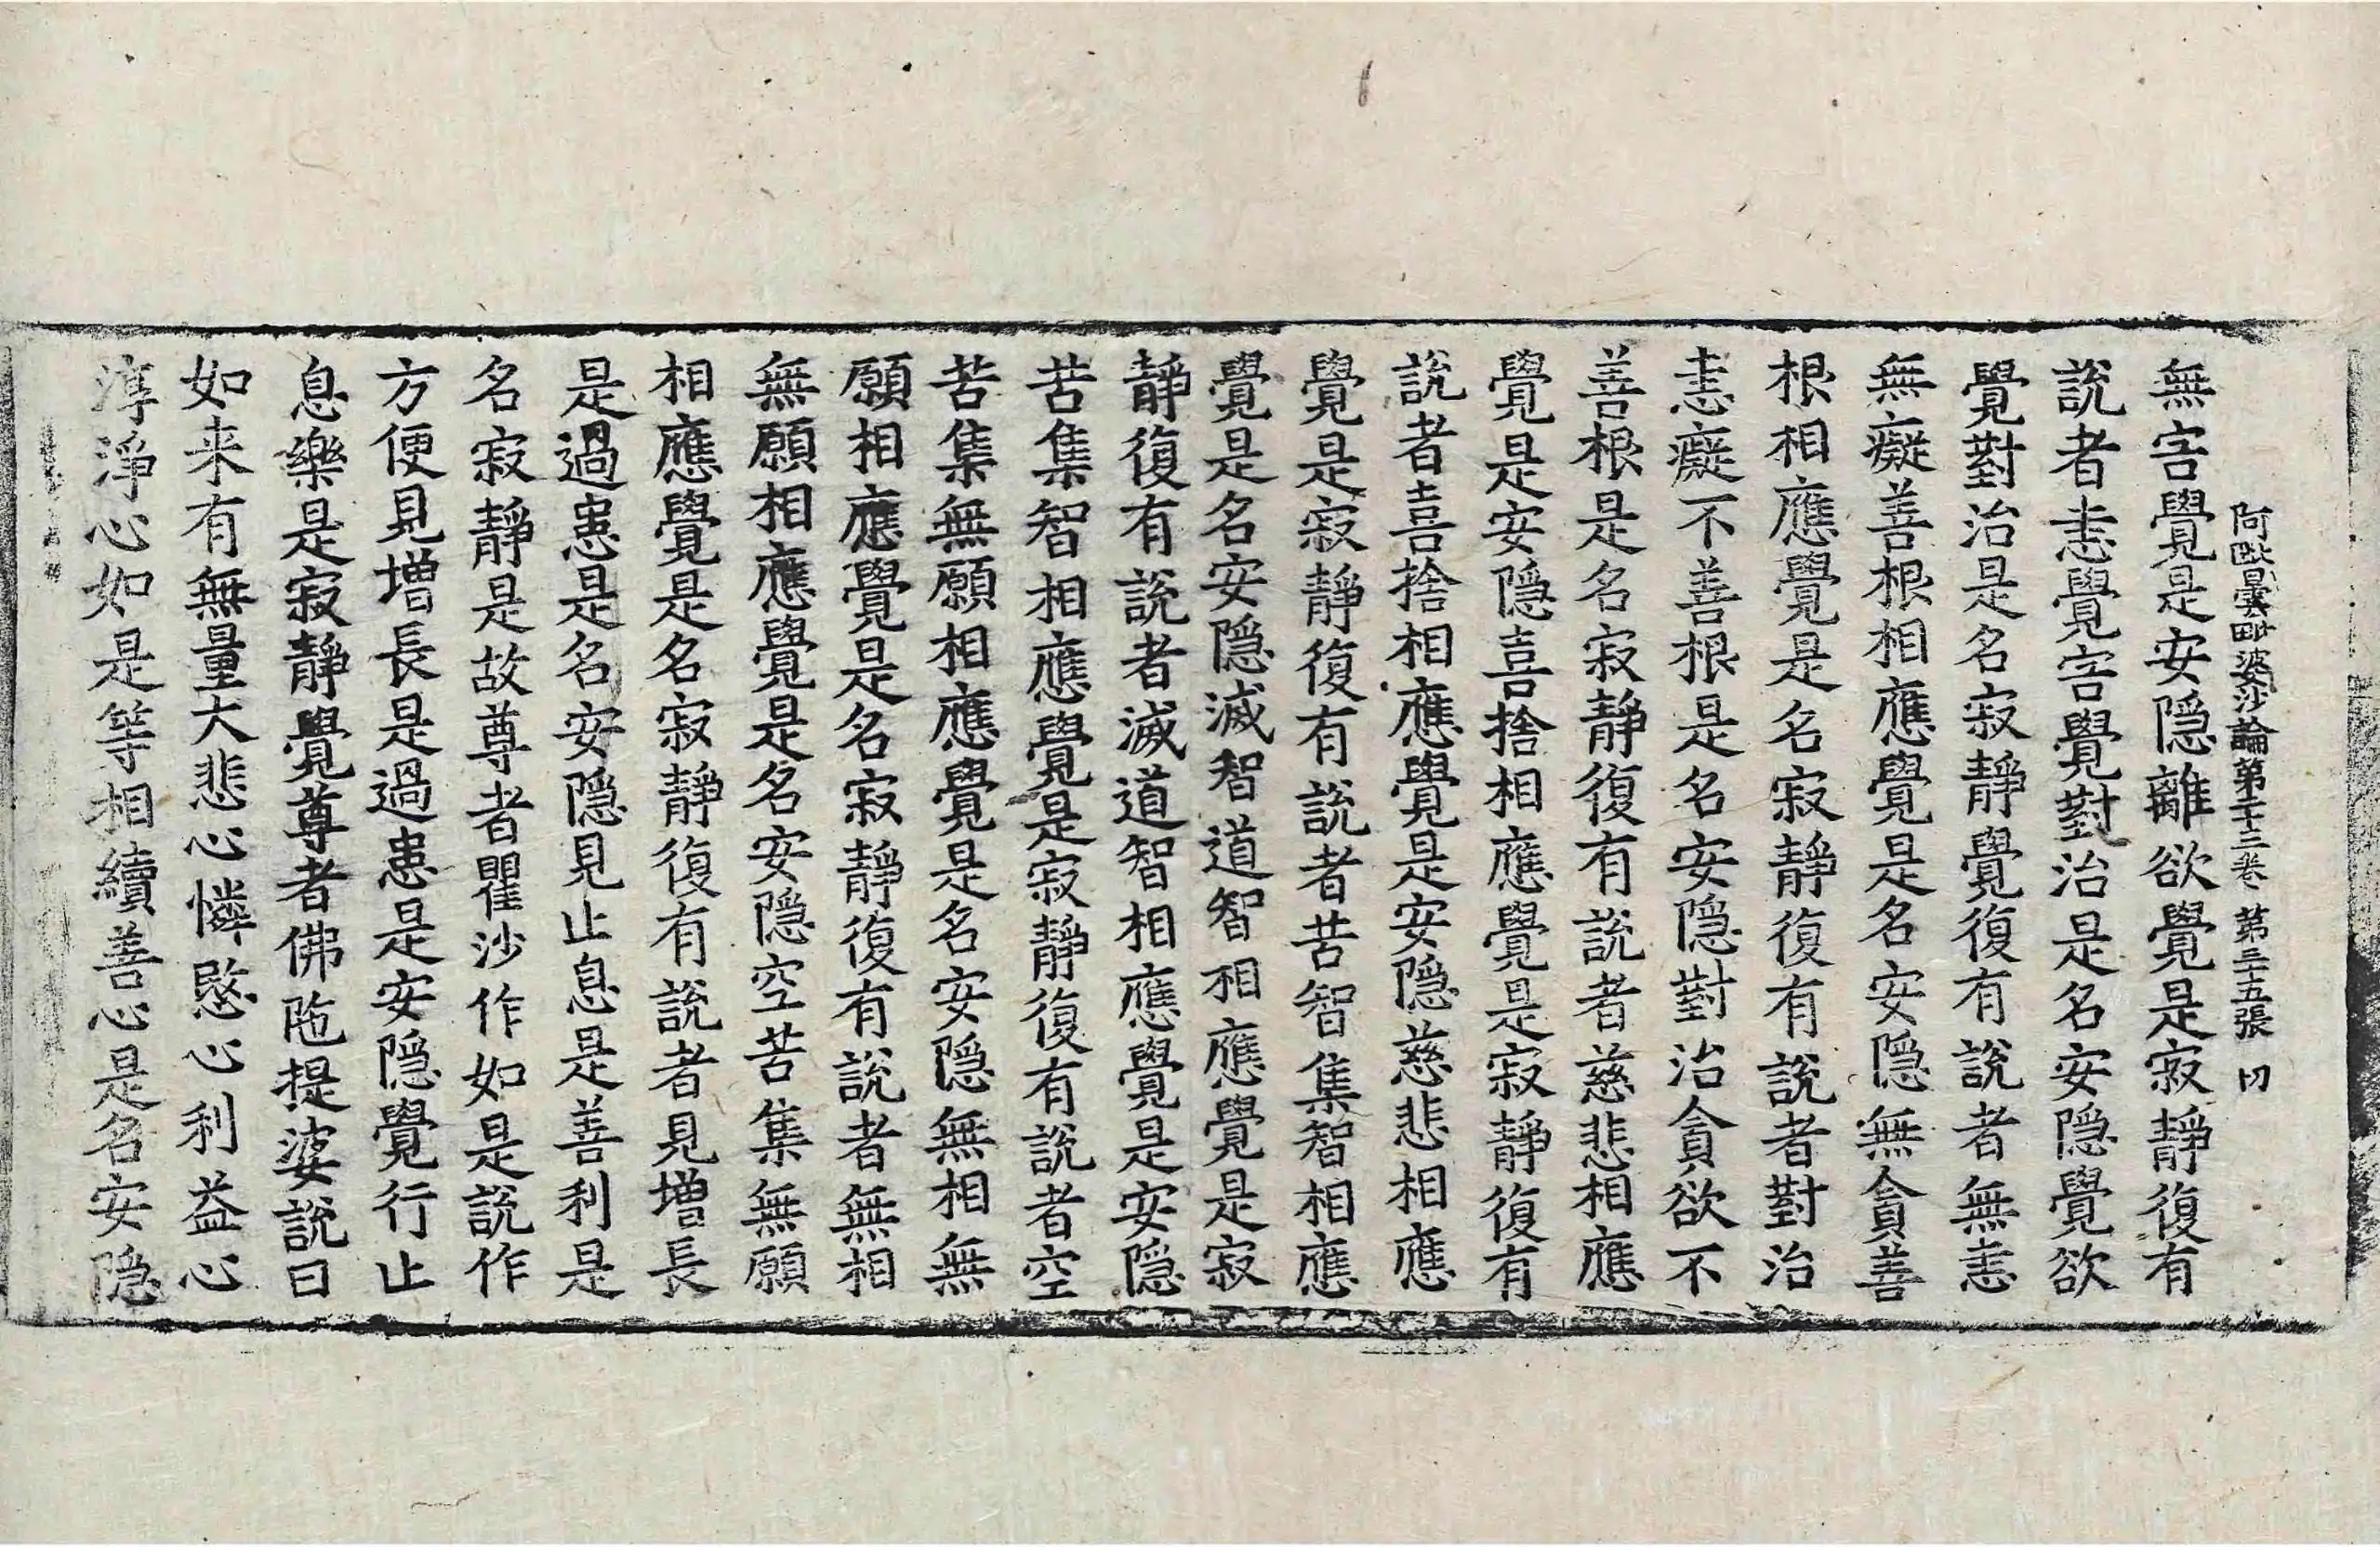 阿毗曇毗婆沙論第二十三卷 第三十五張
無害覺是安隱離欲覺是寂靜復有
說者恚覺害覺對治是名安隱覺欲
覺對治是名寂靜覺復有說者無恚
無癡善根相應覺是名安隱無貪善
根相應覺是名寂靜復有說者對治
恚癡不善根是名安隱對治貪欲不
善根是名寂靜復有說者慈悲相應
覺是安隱喜捨相應覺是寂靜復有
說者喜捨相應覺是安隱慈悲相應
覺是寂靜復有說者苦智集智相應
覺是名安隱滅智道智相應覺是寂
靜復有說者滅道智相應覺是安隱
苦集智相應覺是寂靜復有說者空
苦集無願相應覺是名安隱無相無
願相應覺是名寂靜復有說者無相
無願相應覺是名安隱空苦集無願
相應覺是名寂靜復有說者見增長
是過患是名安隱見止息是善利是
名寂靜是故尊者瞿沙作如是說作
方便見增長是過患是安隱覺行止
息樂是寂靜覺尊者佛陁提婆說曰
如来有無量大悲心憐愍心利益心
淳淨心如是等相續善心是名安隱